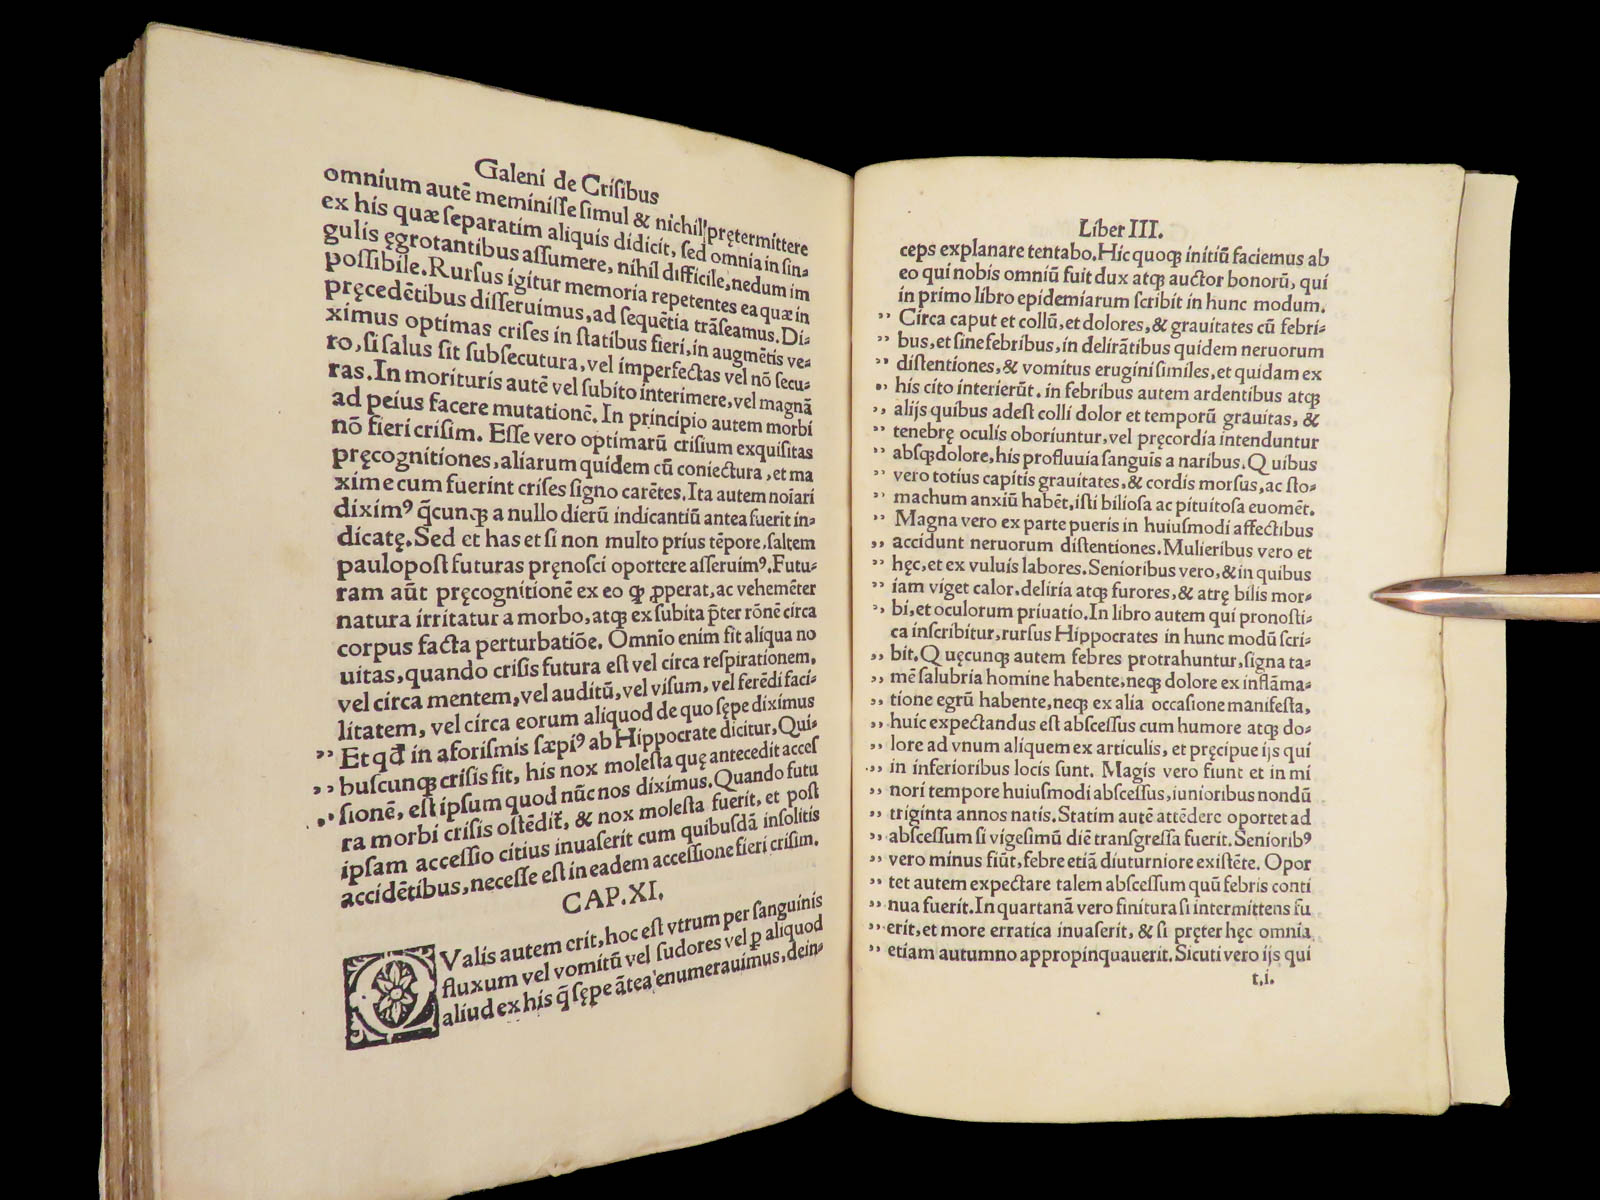 Galeni de Crisibus
omnium autē meminisse simul & nichil prętermittere
ex his quæ separatim aliquis didicit, sed omnia in sin=
gulis ęgrotantibus assumere, nihil difficile, nedum im
possibile. Rursus igitur memoria repetentes ea quæ in
pręcedētibus disseruimus, ad sequētia trāseamus. Di=
ximus optimas crises in statibus fieri, in augmētis ve=
ro, si salus sit subsecutura, vel imperfectas vel nō secu=
ras. In morituris autē vel subito interimere, vel magnā
ad peius facere mutationē. In principio autem morbi
nō fieri crisim. Esse vero optimarū crisium exquisitas
pręcognitiones, aliarum quidem cū coniectura, et ma
xime cum fuerint crises signo carētes. Ita autem noīari
diximꝰ q̄cunqꝫ a nullo dierū indicantiū antea fuerit in=
dicatę. Sed et has et si non multo prius tēpore, saltem
paulo post futuras pręnosci oportere asseruimꝰ. Futu=
ram aūt pręcognitionē ex eo qꝫ ꝓperat, ac vehemēter
natura irritatur a morbo, atqꝫ ex subita p̄ter rōnē circa
corpus facta perturbatiōe. Omnīo enim fit aliqua no
uitas, quando crisis futura est vel circa respirationem,
vel circa mentem, vel auditū, vel visum, vel ferēdi faci=
litatem, vel circa eorum aliquod de quo sępe diximus
„ Et qđ in aforismis sæpiꝰ ab Hippocrate dicitur, Qui=
„ buscunqꝫ crisis fit, his nox molesta quę antecedit acces
„ sionē, est ipsum quod nūc nos diximus. Quando futu
ra morbi crisis ostēdit̄, & nox molesta fuerit, et post
ipsam accessio citius inuaserit cum quibusdā insolitis
accidētibus, necesse est in eadem accessione fieri crisim.
CAP. XI.
QValis autem erit, hoc est vtrum per sanguinis
fluxum vel vomitū vel sudores vel ꝑ aliquod
aliud ex his q̄ sępe ātea enumerauimus, dein=
Liber III.
ceps explanare tentabo. Hic quoqꝫ initiū faciemus ab
eo qui nobis omniū fuit dux atqꝫ auctor bonorū, qui
in primo libro epidemiarum scribit in hunc modum.
„ Circa caput et collū, et dolores, & grauitates cū febri=
„ bus, et sine febribus, in delirātibus quidem neruorum
„ distentiones, & vomitus erugini similes, et quidam ex
„ his cito interierūt. in febribus autem ardentibus atqꝫ
„ alijs quibus adest colli dolor et temporū grauitas, &
„ tenebrę oculis oboriuntur, vel pręcordia intenduntur
„ absqꝫ dolore, his profluuia sanguīs a naribus. Quibus
„ vero totius capitis grauitates, & cordis morsus, ac sto=
„ machum anxiū habēt, isti biliosa ac pituitosa euomēt.
„ Magna vero ex parte pueris in huiusmodi affectibus
„ accidunt neruorum distentiones. Mulieribus vero et
„ hęc, et ex vuluis labores. Senioribus vero, & in quibus
„ iam viget calor. deliria atqꝫ furores, & atrę bilis mor=
„ bi, et oculorum priuatio. In libro autem qui pronosti=
ca inscribitur, rursus Hippocrates in hunc modū scri=
„ bit. Quęcunqꝫ autem febres protrahuntur, signa ta=
„ mē salubria homine habente, neqꝫ dolore ex inflāma=
„ tione egrū habente, neqꝫ ex alia occasione manifesta,
„ huic expectandus est abscessus cum humore atqꝫ do=
„ lore ad vnum aliquem ex articulis, et pręcipue ijs qui
„ in inferioribus locis sunt. Magis vero fiunt et in mi
„ nori tempore huiusmodi abscessus, iunioribus nondū
„ triginta annos natis. Statim autē attēdere oportet ad
„ abscessum si vigesimū diē transgressa fuerit. Senioribꝰ
„ vero minus fiūt, febre etiā diuturniore existēte. Opor
„ tet autem expectare talem abscessum quū febris conti
„ nua fuerit. In quartanā vero finitura si intermittens fu
„ erit, et more erratica inuaserit, & si pręter hęc omnia
„ etiam autumno appropinquauerit. Sicuti vero ijs qui
t.i.